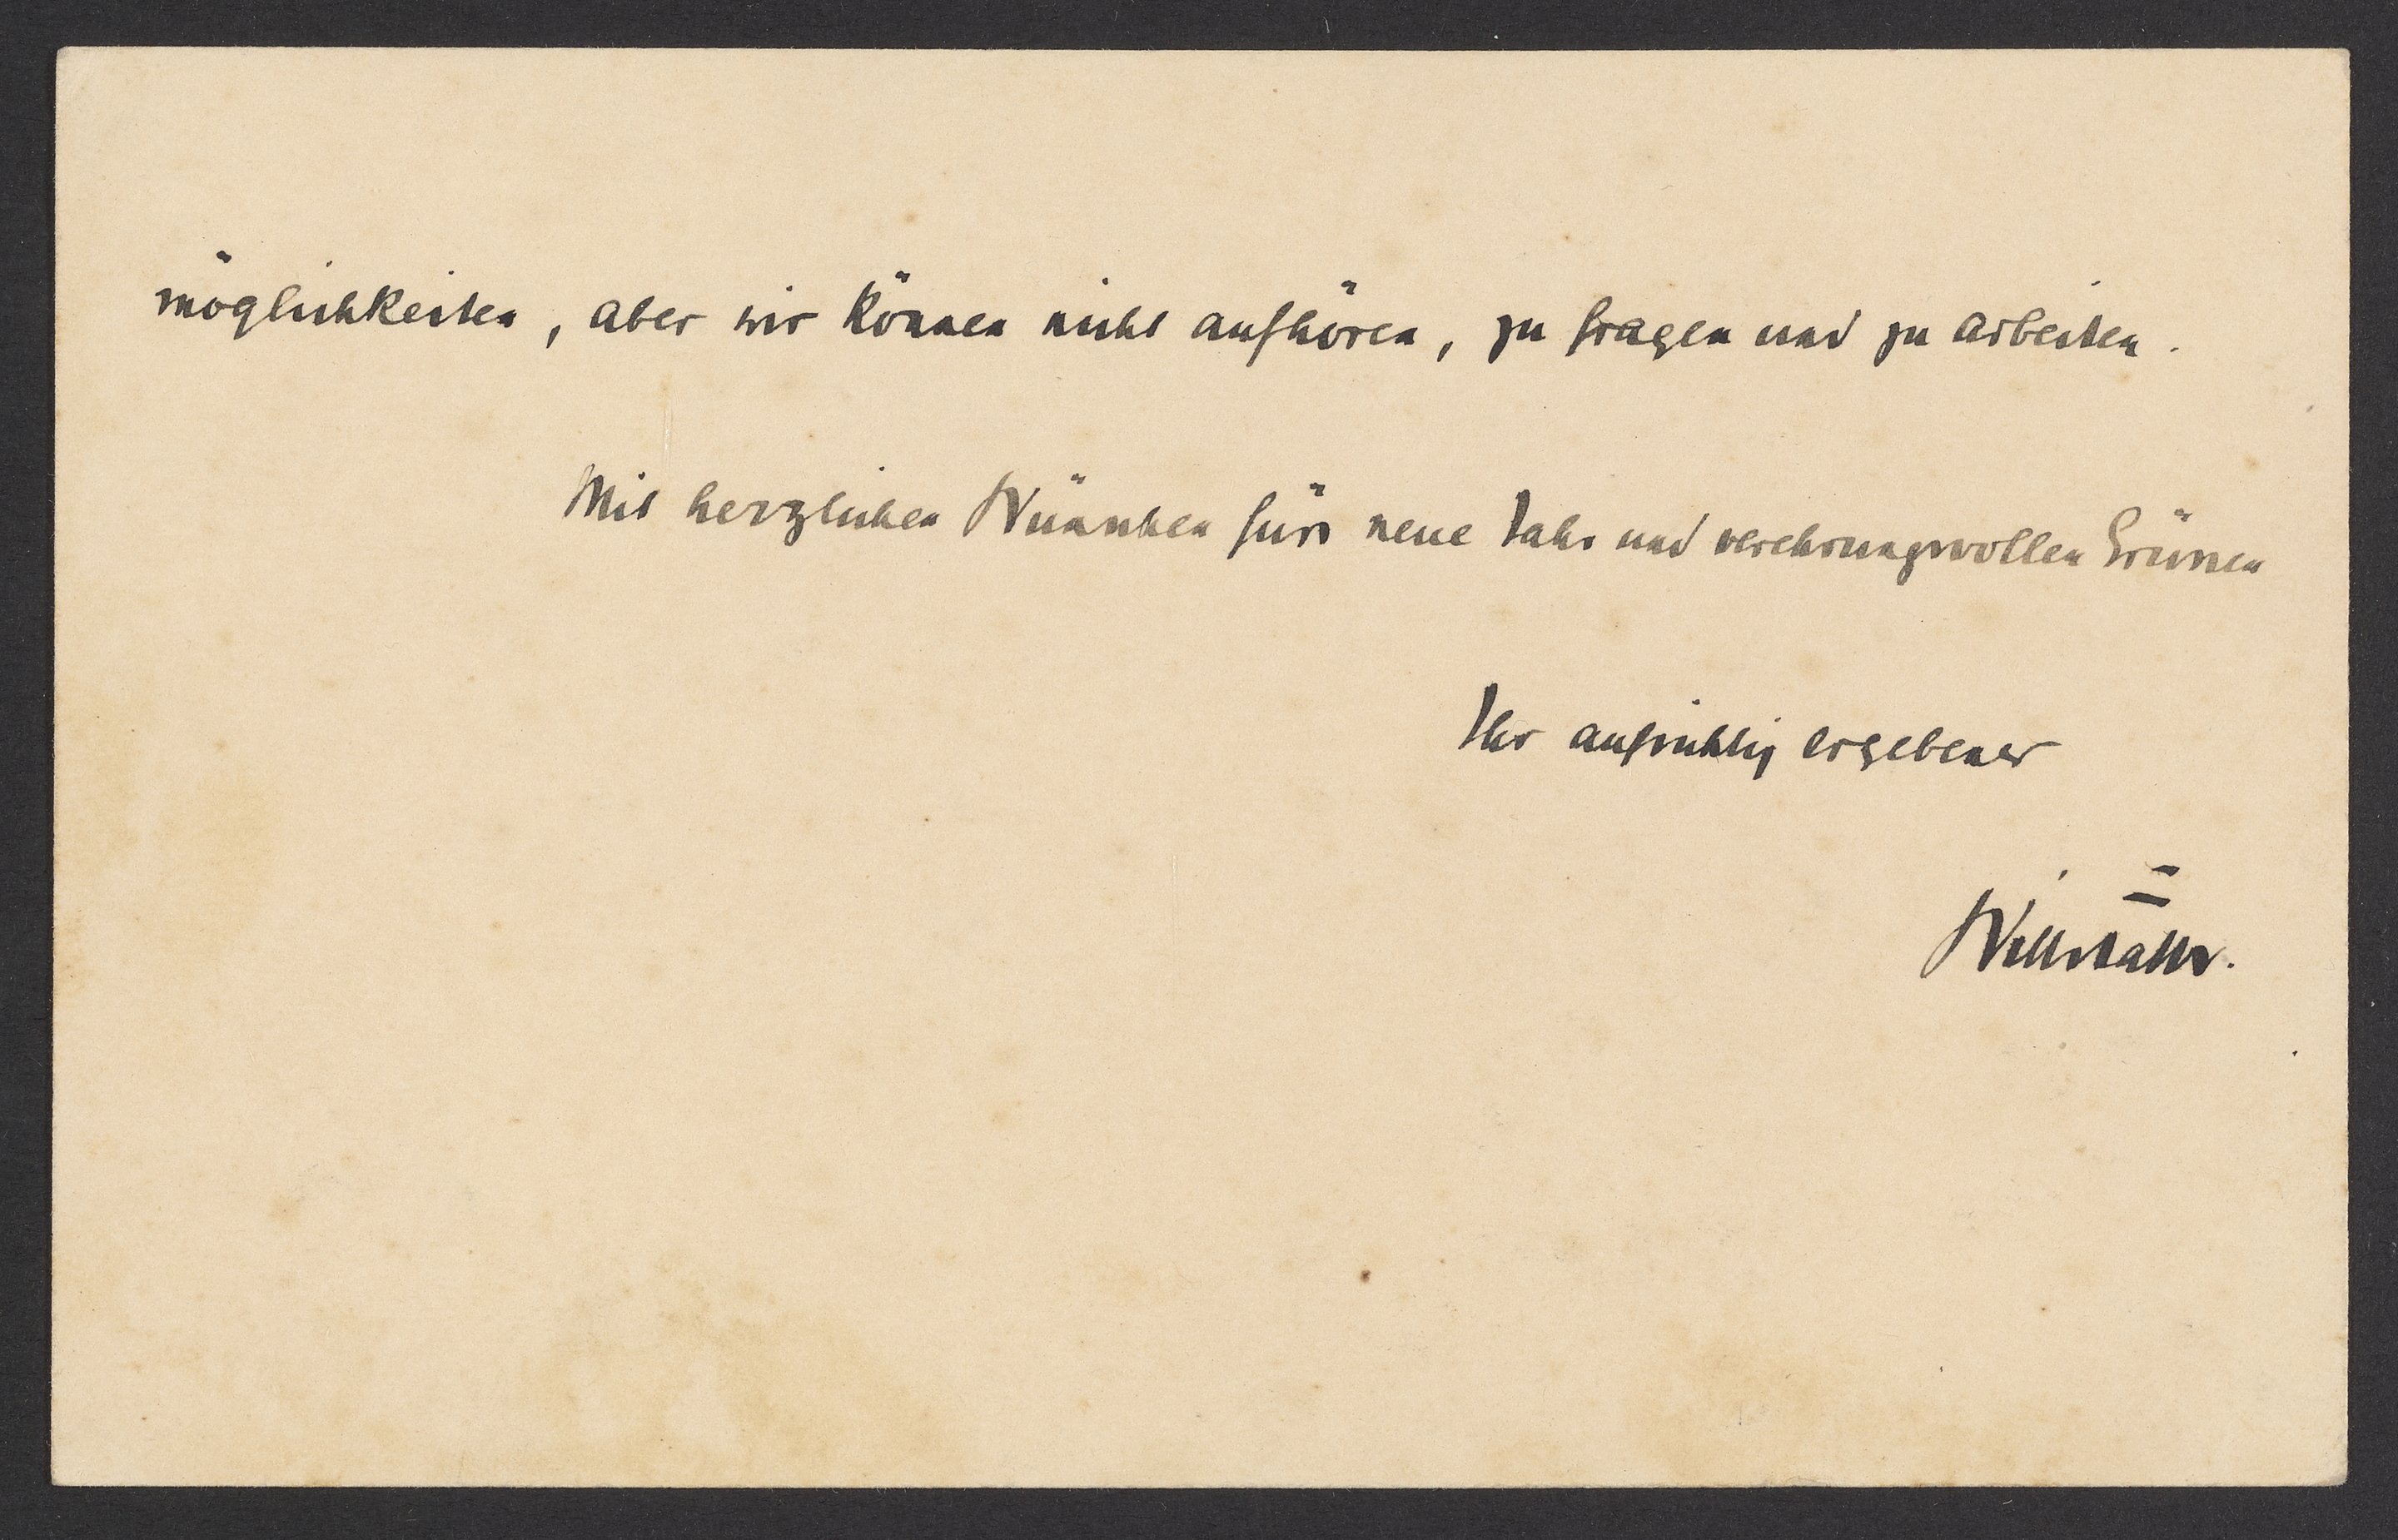 möglichkeiten, aber wir können nicht aufhören, zu fragen und zu arbeiten.
Mit herzlichen Wünschen fürs neue Jahr und verehrungsvollen Grüssen
Ihr aufrichtig ergebener
Willstätter.